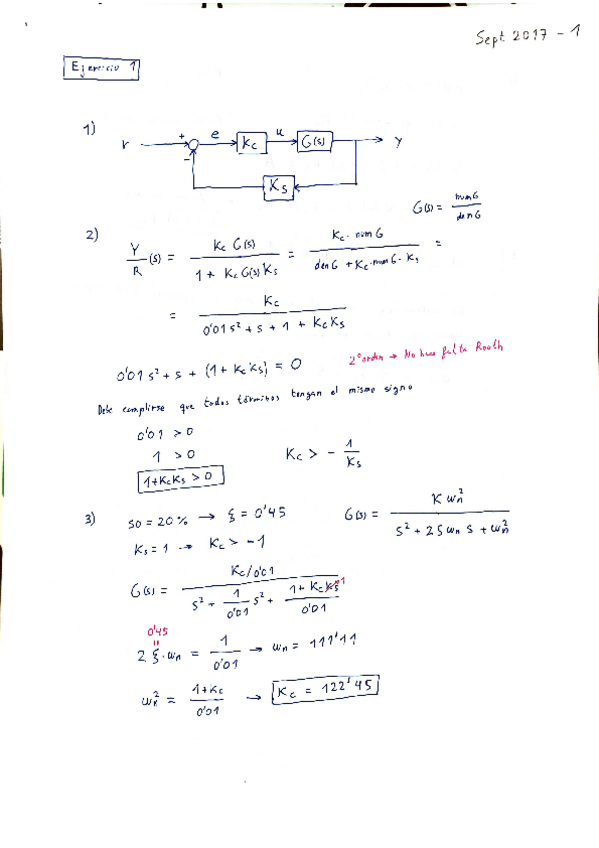 Sept 2017 - 1
Ejercicio 1
1)
r + - e Kc u G(s) y
Ks
G(s) = numG / denG
2)
Y/R (s) = Kc G(s) / (1 + Kc G(s) Ks) = Kc · num G / (den G + Kc · num G · Ks) =
= Kc / (0'01 s² + s + 1 + Kc Ks)
0'01 s² + s + (1 + Kc Ks) = 0
2º orden → No hace falta Routh
Debe cumplirse que todos términos tengan el mismo signo
0'01 > 0
1 > 0
Kc > - 1/Ks
1 + Kc Ks > 0
3)
SO = 20% → ξ = 0'45
G(s) = K ωn² / (s² + 2ξωn s + ωn²)
Ks = 1 → Kc > -1
G(s) = (Kc / 0'01) / (s² + 1/0'01 s² + (1 + Kc Ks 1)/0'01)
0'45
2 ξ · ωn = 1/0'01 → ωn = 111'11
ωn² = (1 + Kc)/0'01 → Kc = 122'45